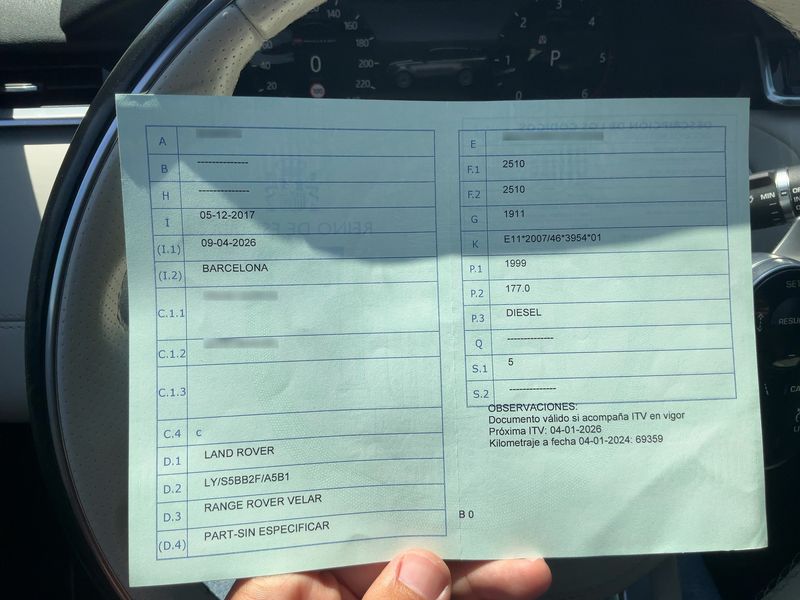 A
B --------------
H --------------
I 05-12-2017
(I.1) 09-04-2026
(I.2) BARCELONA
C.1.1
C.1.2
C.1.3
C.4 c
D.1 LAND ROVER
D.2 LY/S5BB2F/A5B1
D.3 RANGE ROVER VELAR
(D.4) PART-SIN ESPECIFICAR
E
F.1 2510
F.2 2510
G 1911
K E11*2007/46*3954*01
P.1 1999
P.2 177.0
P.3 DIESEL
Q --------------
S.1 5
S.2 --------------
OBSERVACIONES:
Documento válido si acompaña ITV en vigor
Próxima ITV: 04-01-2026
Kilometraje a fecha 04-01-2024: 69359
B 0
140
160
180
200
220
0
0
1
2
3
4
5
6
P
MIN